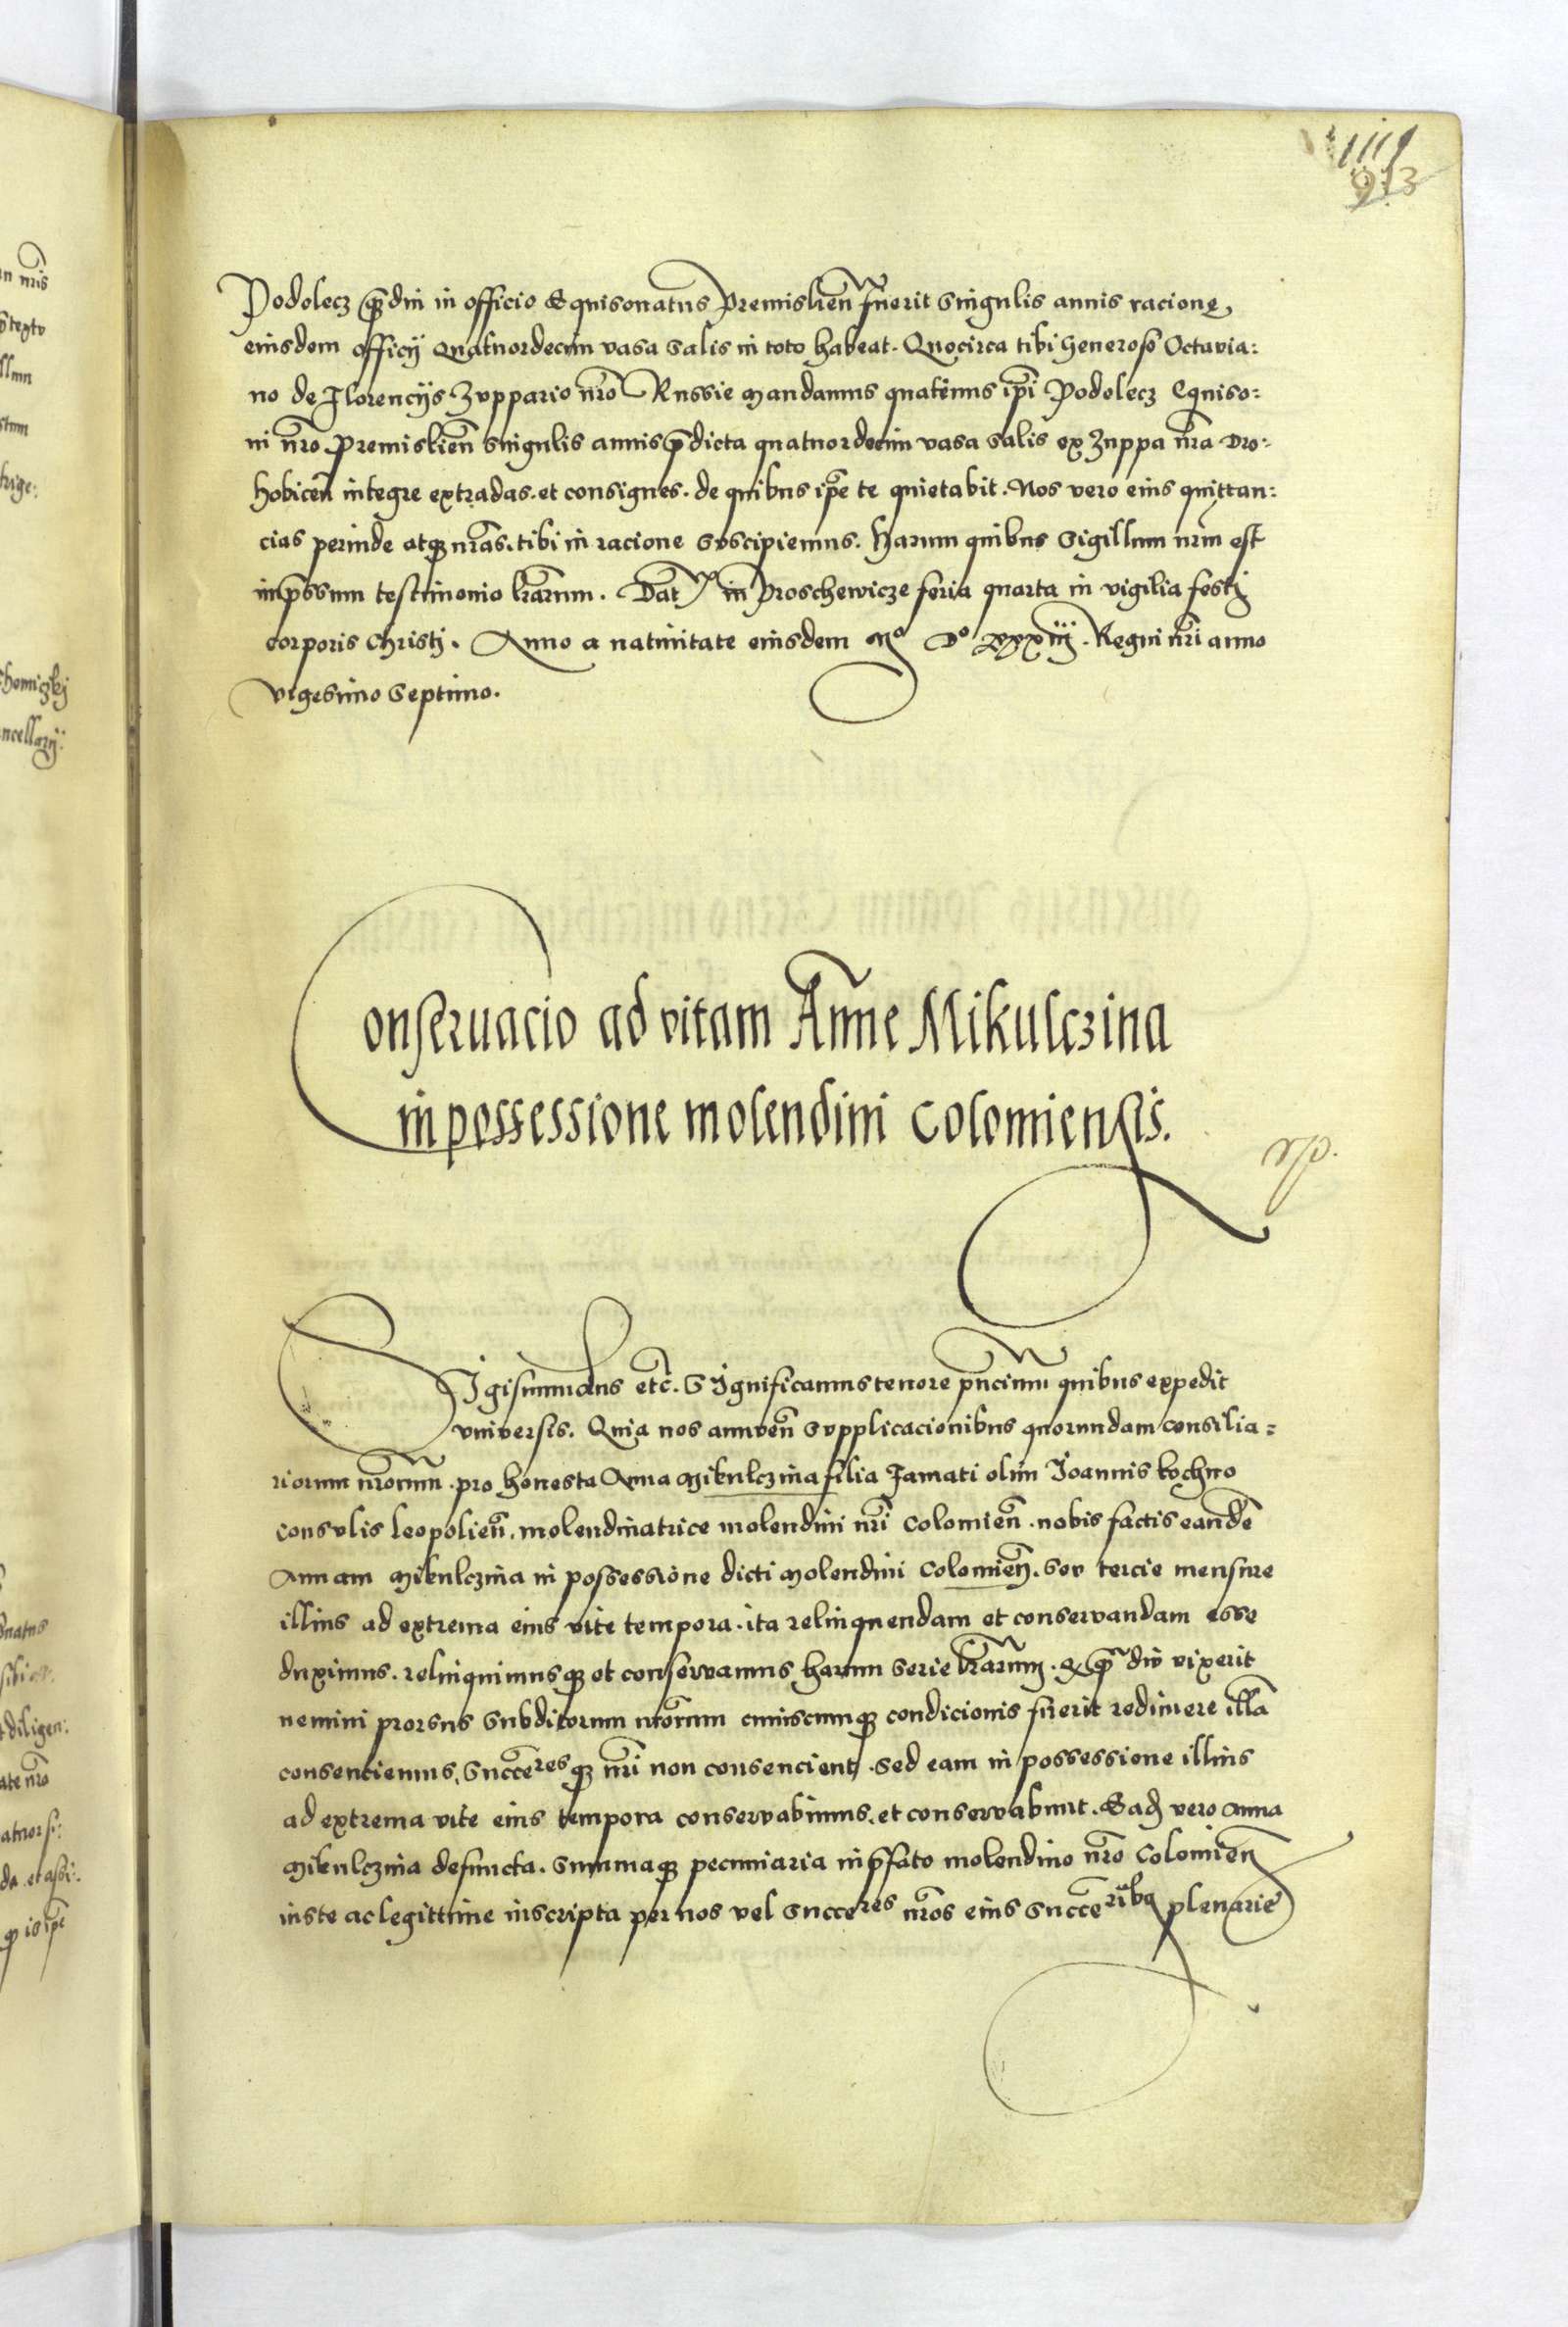 913
Podolecz q̄diu in officio Equisonatus Premislien̄ fuerit singulis annis racione
eiusdem officij quatuordecim vasa salis in toto habeat. Quocirca tibi Generoso Octavia:
no de Florencijs Zuppario nr̄o Russie mandamus quatenus ip̄i Podolecz Equiso:
ni nr̄o Premislien̄ singulis annis p̄dicta quatuordecim vasa salis ex Zuppa nr̄a Dro:
hobicen̄ integre extradas. et consignes. de quibus ip̄e te quietabit. Nos vero eius quittan:
cias perinde atq₃ nr̄as. tibi in racione suscipiemus. Harum quibus sigillum nrm̄ est
imp̄ssum testimonio lrārum. Dat̄ in Proschewicze feria quarta in vigilia festj
corporis Christj. Anno a natiuitate eiusdem Mº Dº xxxiij. Regni nr̄i anno
vigesimo septimo.
Conseruacio ad vitam Anne Mikulczina
in possessione molendini Colomiensis.
Sigismundus etc̄. Significamus tenore pn̄cium quibus expedit
vniversis. Quia nos annuen̄ supplicacionibus quorundam consilia:
riorum nr̄orum. pro honesta Anna Mikulczina filia famati olim Joannis kochno
consulis leopolien̄. molendinatrice molendini nr̄i Colomien̄. nobis factis eandē
Annam Mikulczina in possessione dicti molendini Colomien̄. seu tercie mensure
illius ad extrema eius vite tempora. ita relinquendam et conservandam esse
duximus. relinquimusq₃ et conservamus harum serie lrārum. & q̄ diu vixerit
nemini prorsus subditorum nr̄orum cuiuscumq₃ condicionis fuerit redimere illā
consenciemus, succc̄resq₃ nr̄i non consencient. sed eam in possessione illius
ad extrema vite eius tempora conservabimus. et conservabunt. Ead̄ vero Anna
Mikulczina defuncta. summaq₃ pecuniaria in p̄fato molendino nr̄o Colomien̄
iuste ac legittime inscripta per nos vel succc̄res nr̄os eius succc̄ribq plenarie